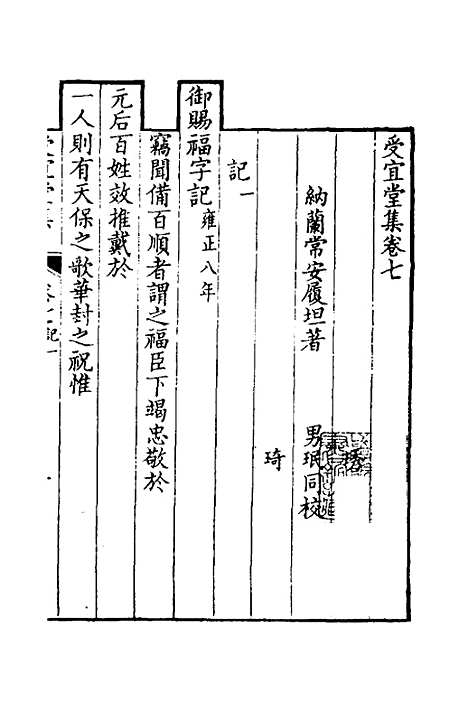 受宜堂集卷七
納蘭常安履坦著
男珉同校
琦
記一
御賜福字記雍正八年
竊聞備百順者謂之福臣下竭忠敬於
元后百姓效推戴於
一人則有天保之歌華封之祝惟
受宜堂集
卷七記一
一